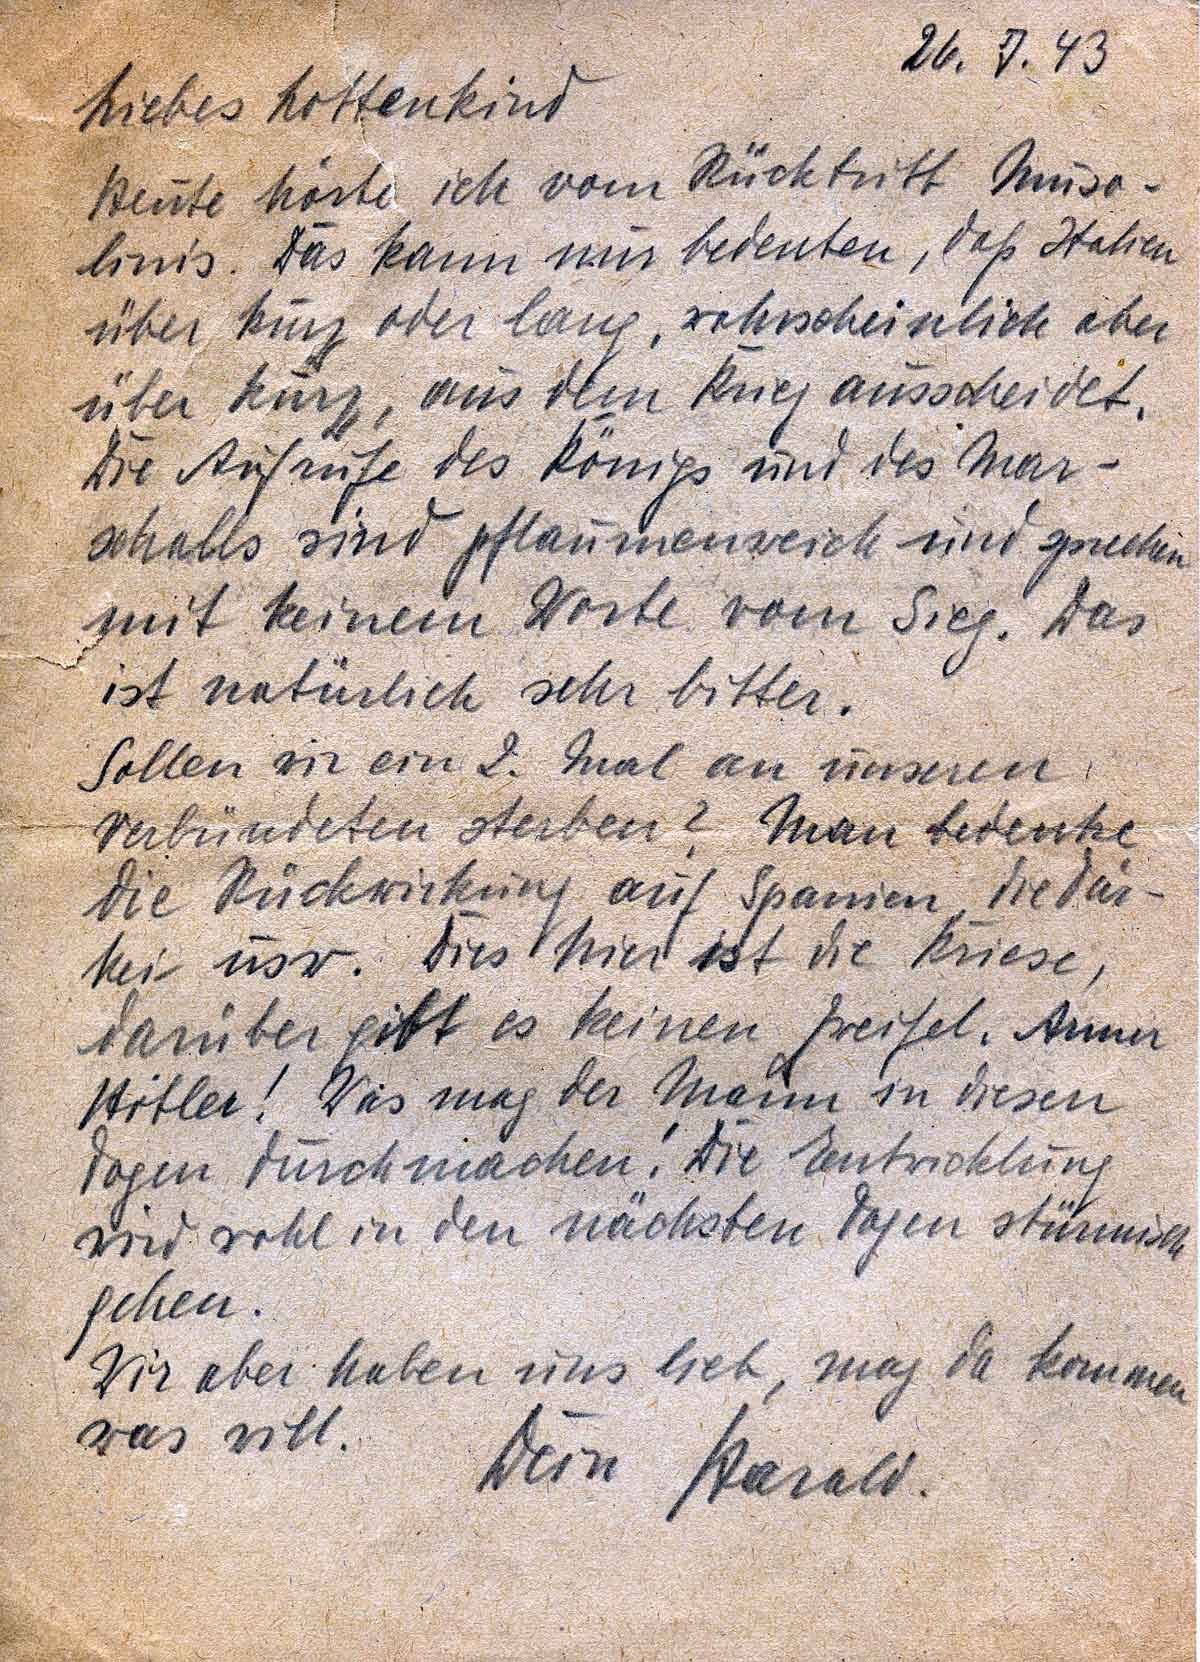 26. 7. 43
Liebes Lottenkind
Heute hörte ich vom Rücktritt Muso-
linis. Das kann nur bedeuten, daß Italien
über kurz oder lang, wahrscheinlich aber
über kurz, aus dem Krieg ausscheidet.
Die Aufrufe des Königs und des Mar-
schalls sind pflaumenweich und sprechen
mit keinem Worte vom Sieg. Das
ist natürlich sehr bitter.
Sollen wir ein 2. Mal an unseren
Verbündeten sterben? Man bedenke
die Rückwirkung auf Spanien, die Tür-
kei usw. Dies hier ist die Kriese,
darüber gibt es keinen Zweifel. Armer
Hitler! Was mag der Mann in diesen
Tagen durchmachen! Die Entwicklung
wird wohl in den nächsten Tagen stürmisch
gehen.
Wir aber haben uns lieb, mag da kommen
was will.
Dein Harald.